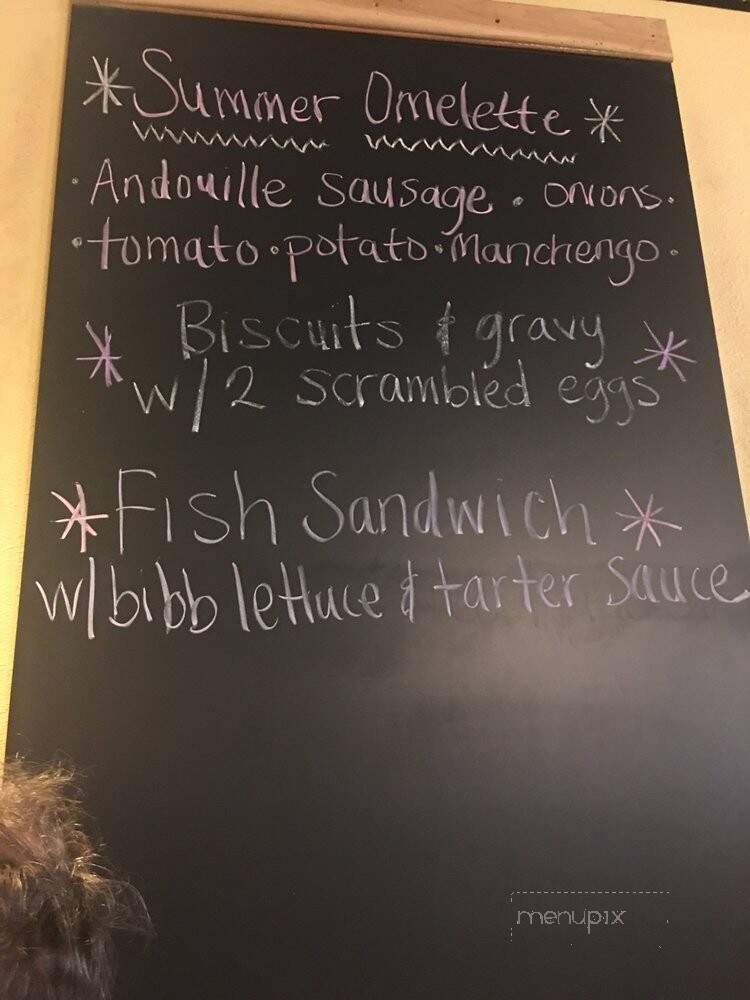 * Summer Omelette *
· Andouille sausage · onions ·
· tomato · potato · Manchengo ·
* Biscuits & gravy *
w/2 scrambled eggs
* Fish Sandwich *
w/bibb lettuce & tarter sauce
menupix